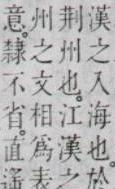 漢之入海也。於
荆州也。江漢之
州之文相爲表
意。隸不省。直遥